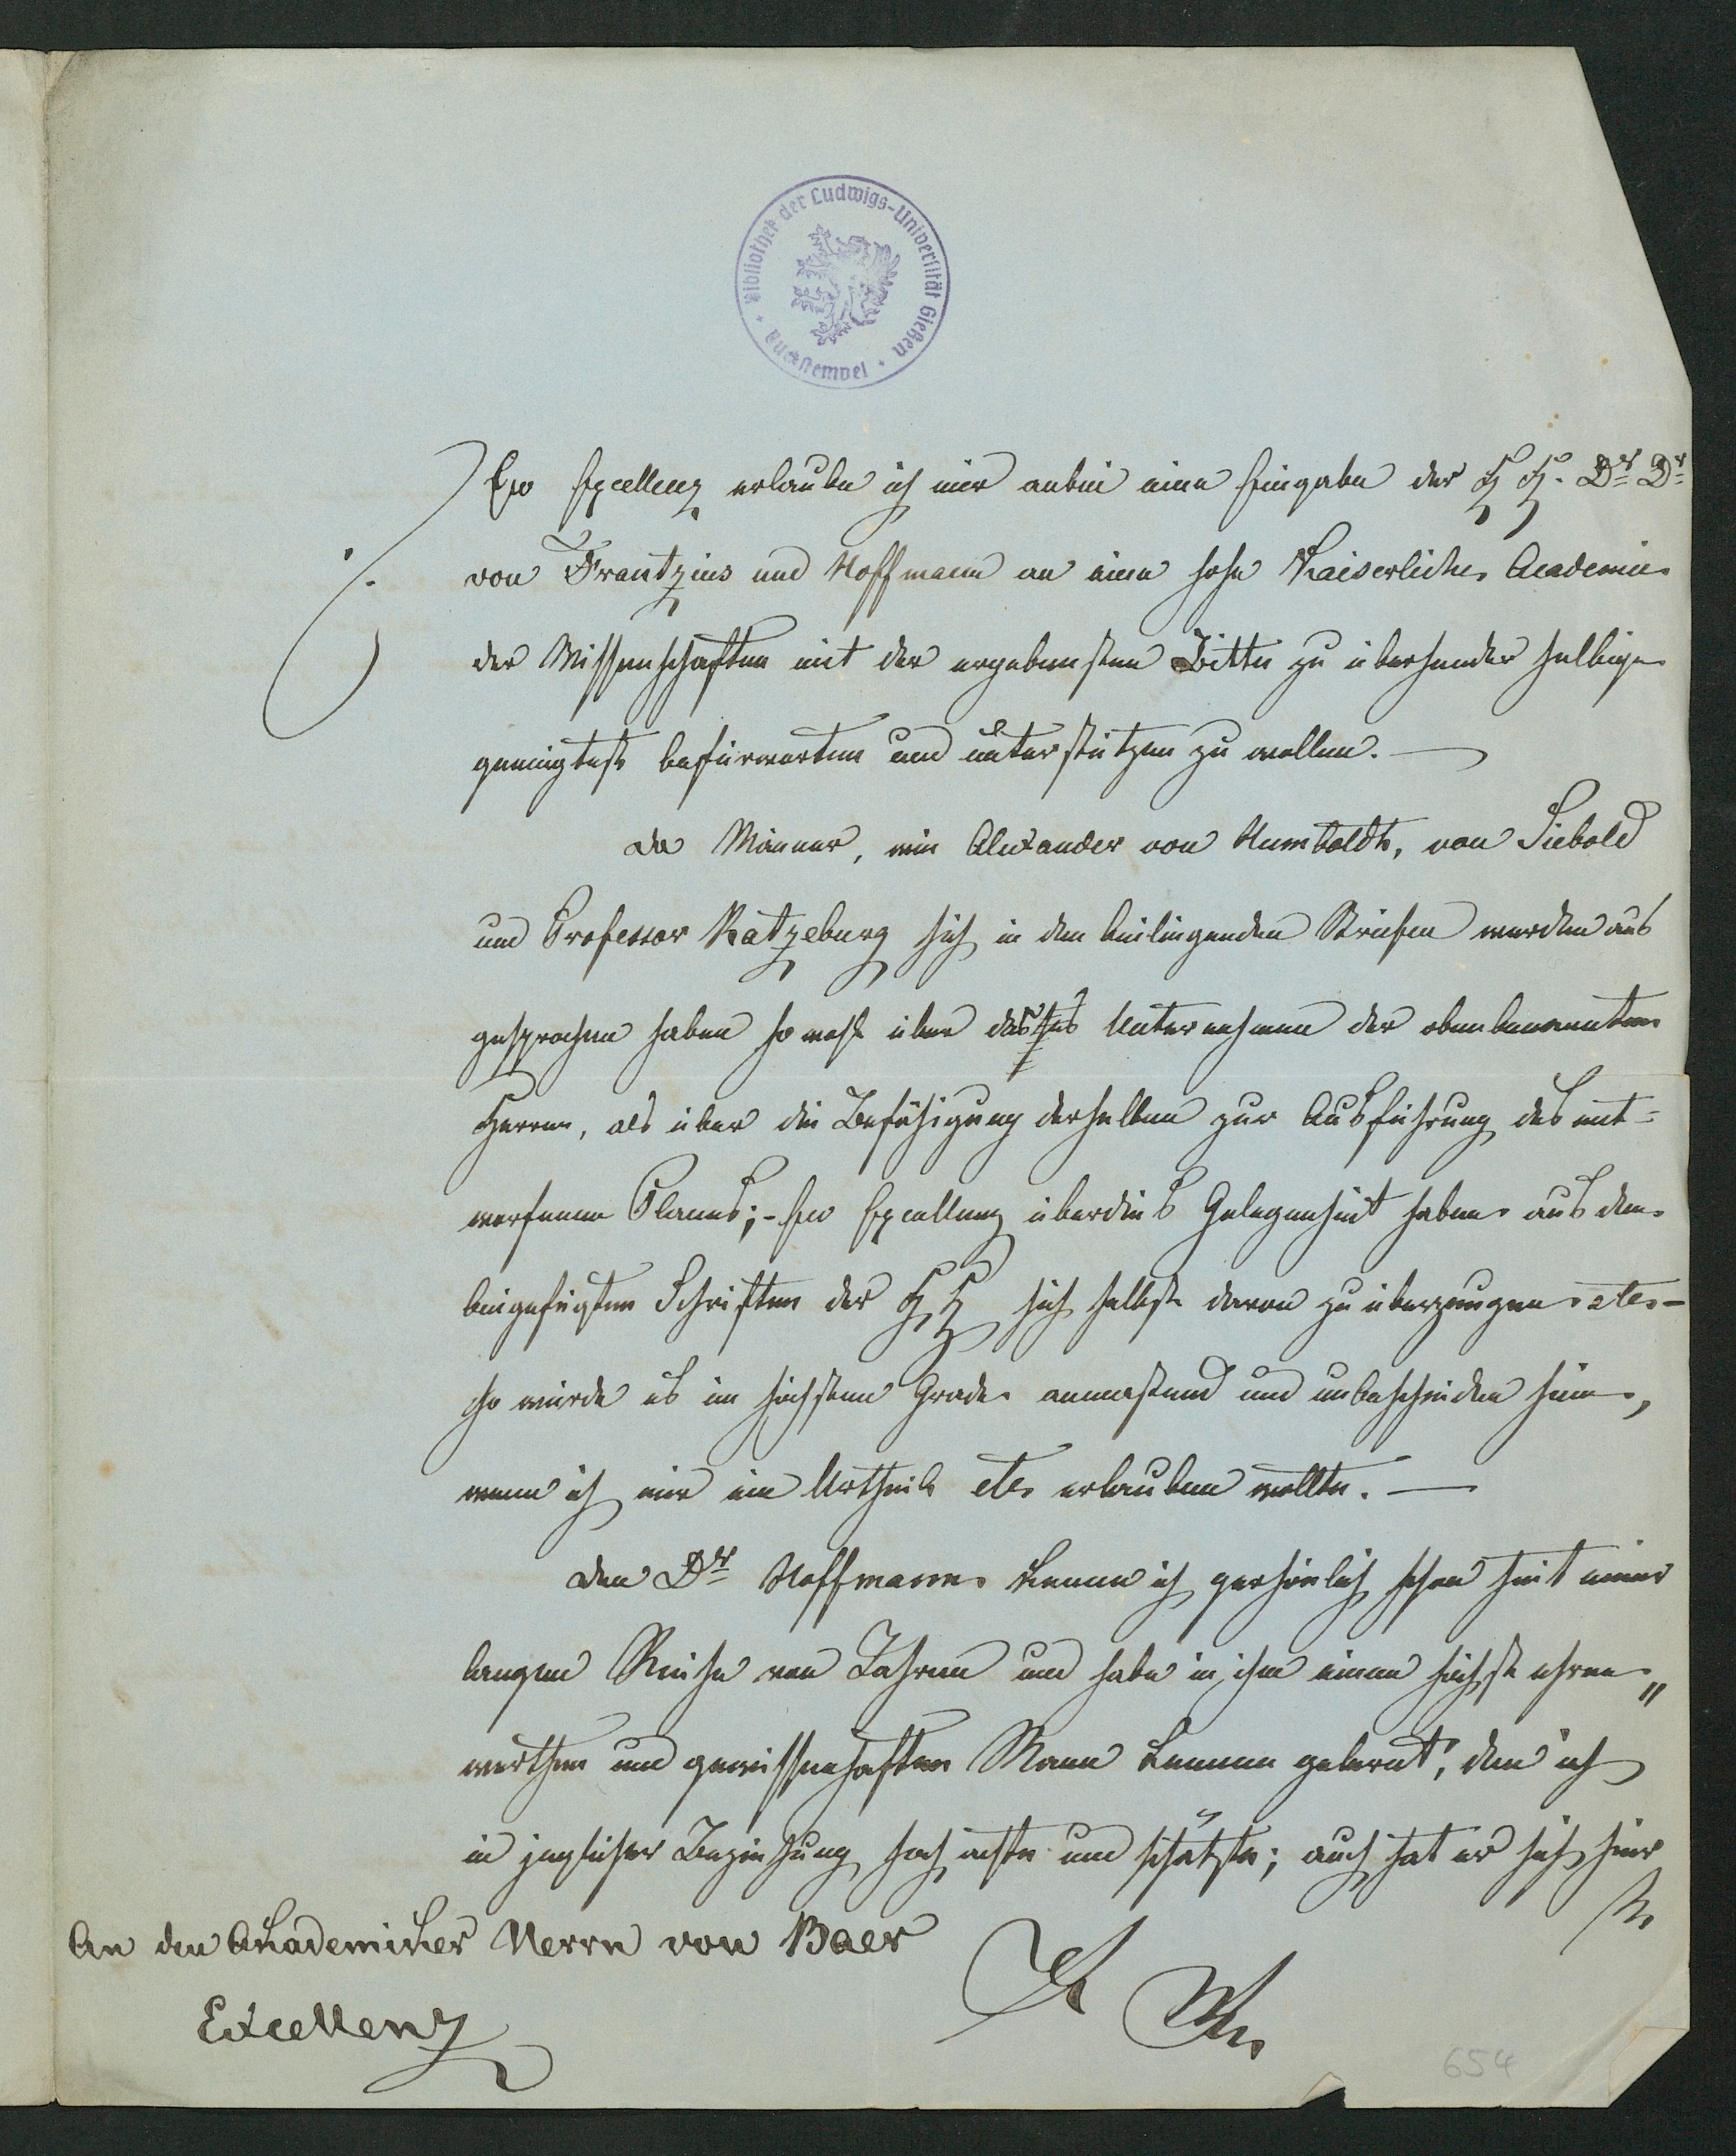 Bibliothek der Ludwigs-Universität Gießen
Ew Excellenz erlaube ich mir anbei eine Eingabe der HH. Dr Dr
von Frantzius und Hoffmann an eine hohe Kaiserliche Academie
der Wissenschaften mit der ergebensten Bitte zu übersenden selbige
geneigtest befürworten und unterstützen zu wollen. —
Da Männer, wie Alexander von Humboldt, von Siebold
und Professor Ratzeburg sich in den beiliegenden Briefen aus
gesprochen haben sowohl über das Unternehmen der obenbenannten
Herren, als über die Befähigung derselben zur Ausführung des ent-
worfenen Planes; - Ew Excellenz überdies Gelegenheit haben aus den
beigefügten Schriften der HH sich selbst davon zu überzeugen etc -
so würde es im höchsten Grade anmaßend und unbescheiden sein,
wenn ich mir ein Urtheil etc erlauben wollte. —
Den Dr Hoffmann kenne ich persönlich schon seit einer
langen Reihe von Jahren und habe in ihm einen höchst ehren„
werthen und gewissenhaften Mann kennen gelernt, den ich
in jeglicher Beziehung hoch achte und schätze; auch hat er sich hier
An den Akademiker Herrn von Baer
Excellenz
654